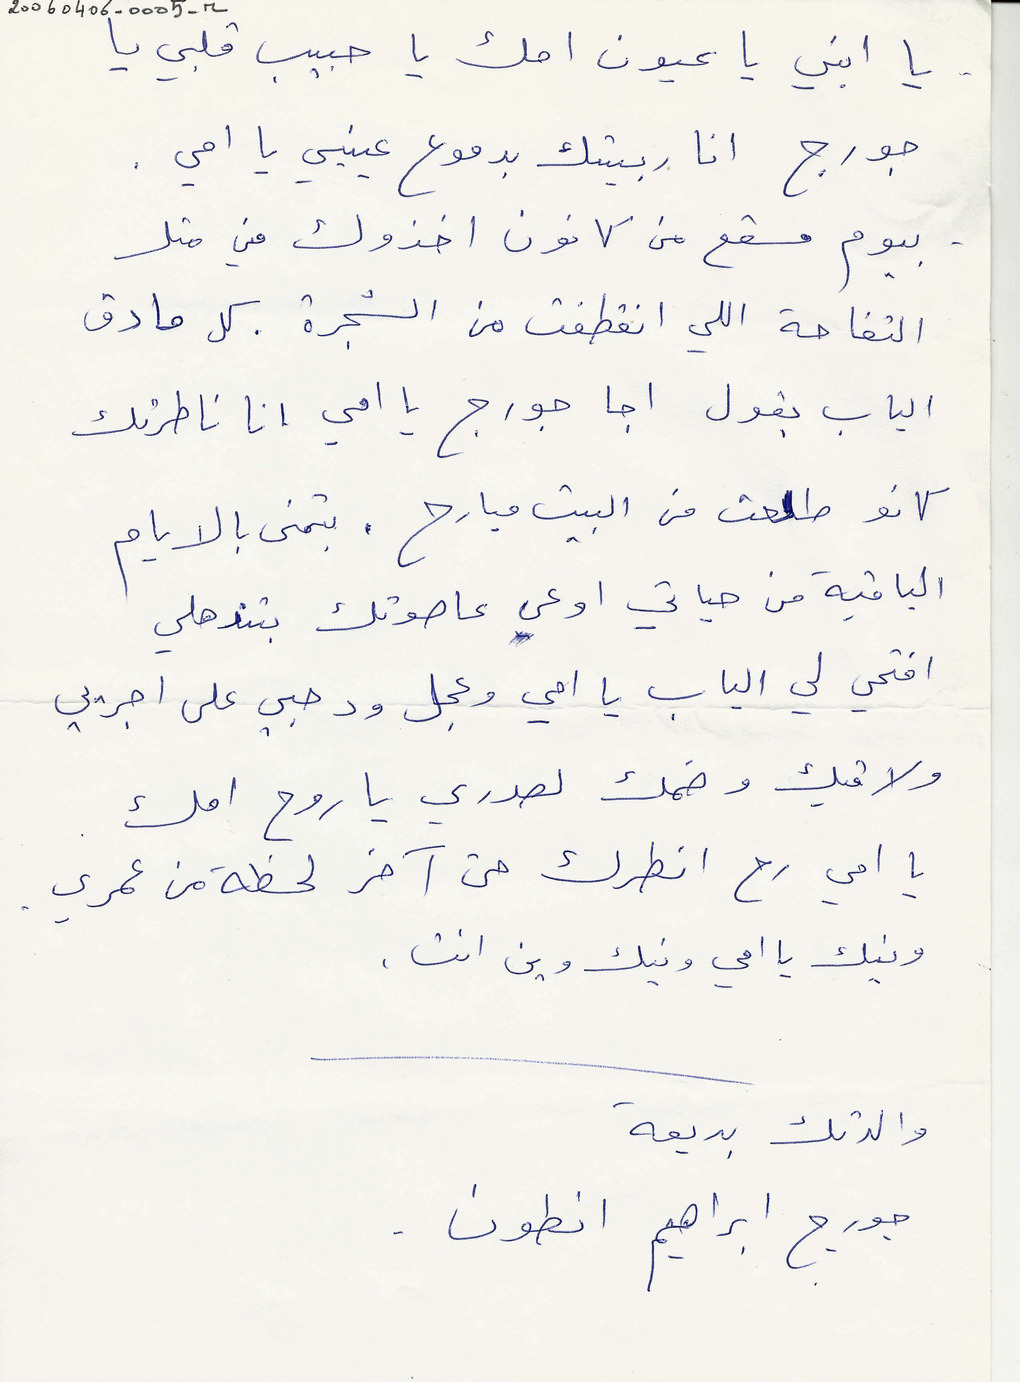 20060406-0005-r
- يا ابني يا عيون امك يا حبيب قلبي يا
جورج انا ربيتك بدموع عينيي يا امي .
- بيوم مسقع من كانون اخذوك مني متل
التفاحة اللي انقطفت من الشجرة . كل ما دق
الباب بقول اجا جورج يا امي انا ناطرتك
كانو طلعت من البيت مبارح . بتمنى بالايام
الباقية من حياتي اوعى عاصوتك بتندهلي
افتحي لي الباب يا امي وعجل ودحبي على اجريي
ولاقيك وضمك لصدري يا روح امك
يا امي رح انطرك حتى آخر لحظة من عمري .
ونيك يا امي ونيك وين انت .
والدتك بديعة
جورج ابراهيم انطون -